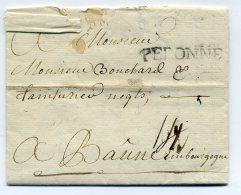 A Monsieur
PERONNE
Monsieur Bouchard &
Tainturier negts,
A Baune
en bourgogne